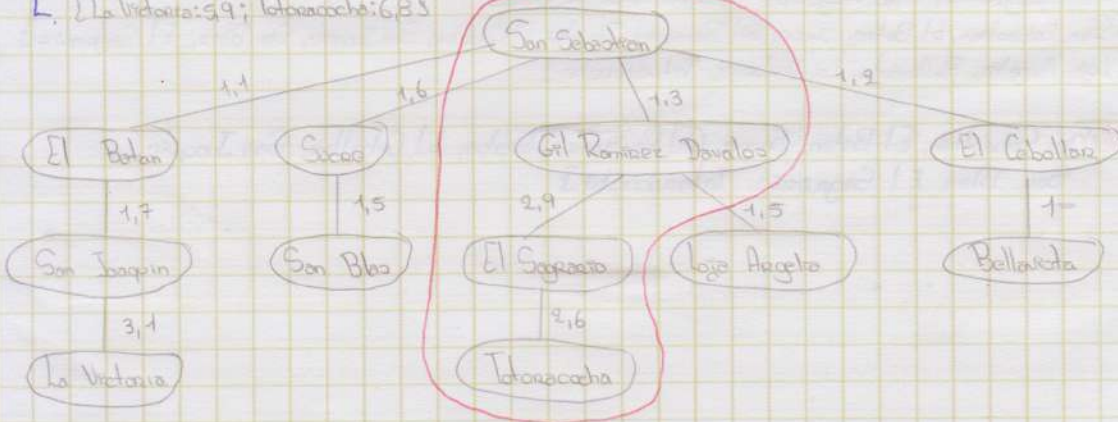 L. {La Victoria:5,9; Totoracocha:6,8}
San Sebastian
1,1
1,6
1,3
1,2
El Batan
Sucre
Gil Ramirez Davalos
El Cebollar
1,7
1,5
2,9
1,5
1
San Joaquin
San Blas
El Sagrario
Bellavista
3,1
2,6
La Victoria
Totoracocha